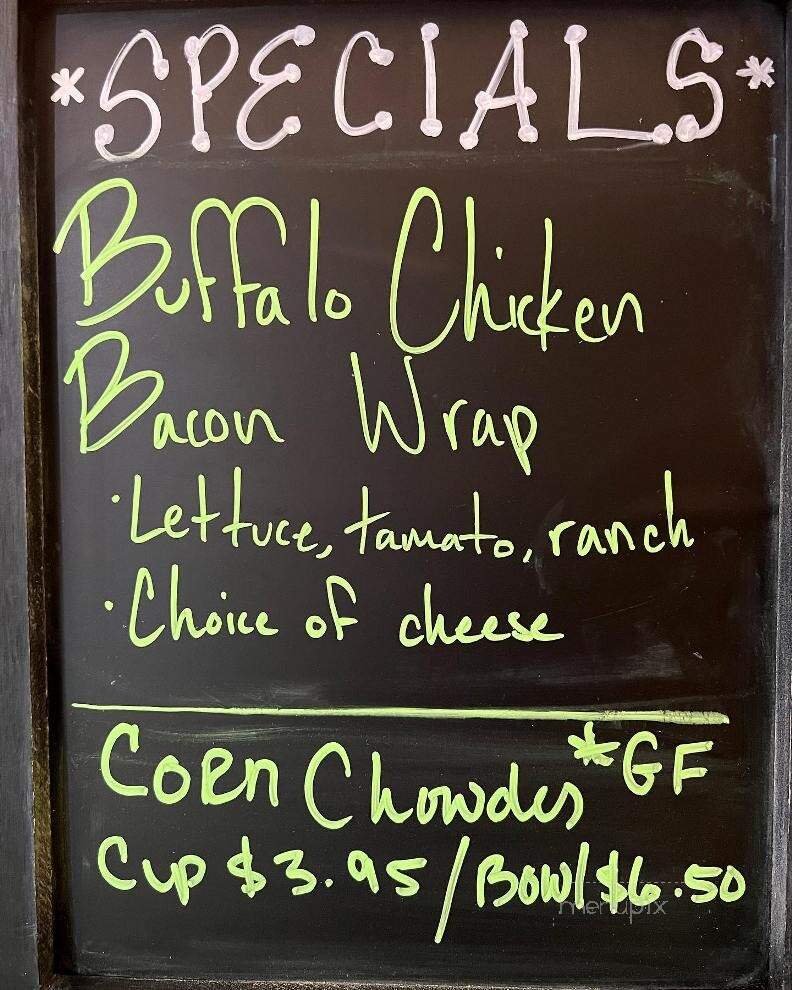 *SPECIALS*
Buffalo Chicken
Bacon Wrap
·Lettuce, tamato, ranch
·Choice of cheese
Corn Chowder *GF
Cup $3.95/Bowl $6.50
menupix